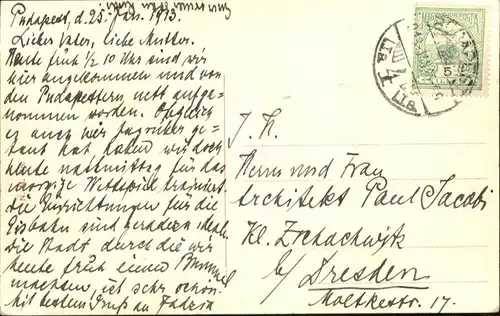 Budapest, d. 25. Jan. 1913.
Lieber Vater, liebe Mutter.
Heute früh ½ 10 Uhr sind wir
hier angekommen und von
den Budapestern nett aufge-
nommen worden. Obgleich
es auch hier ge-
taut hat haben wir doch
heute nachmittag für das
morgige Wettspiel trainiert.
Die Einrichtungen für die
Eisbahn sind geradezu ideal.
Die Stadt durch die wir
heute früh einen Bummel
machten, ist sehr schön.
Mit bestem Gruß an
MAGYAR KIR. POSTA
5
J. H.
Herrn und Frau
Architekt Paul Jacobi
Kl. Zschachwitz
b/ Dresden
Moltkestr. 17.